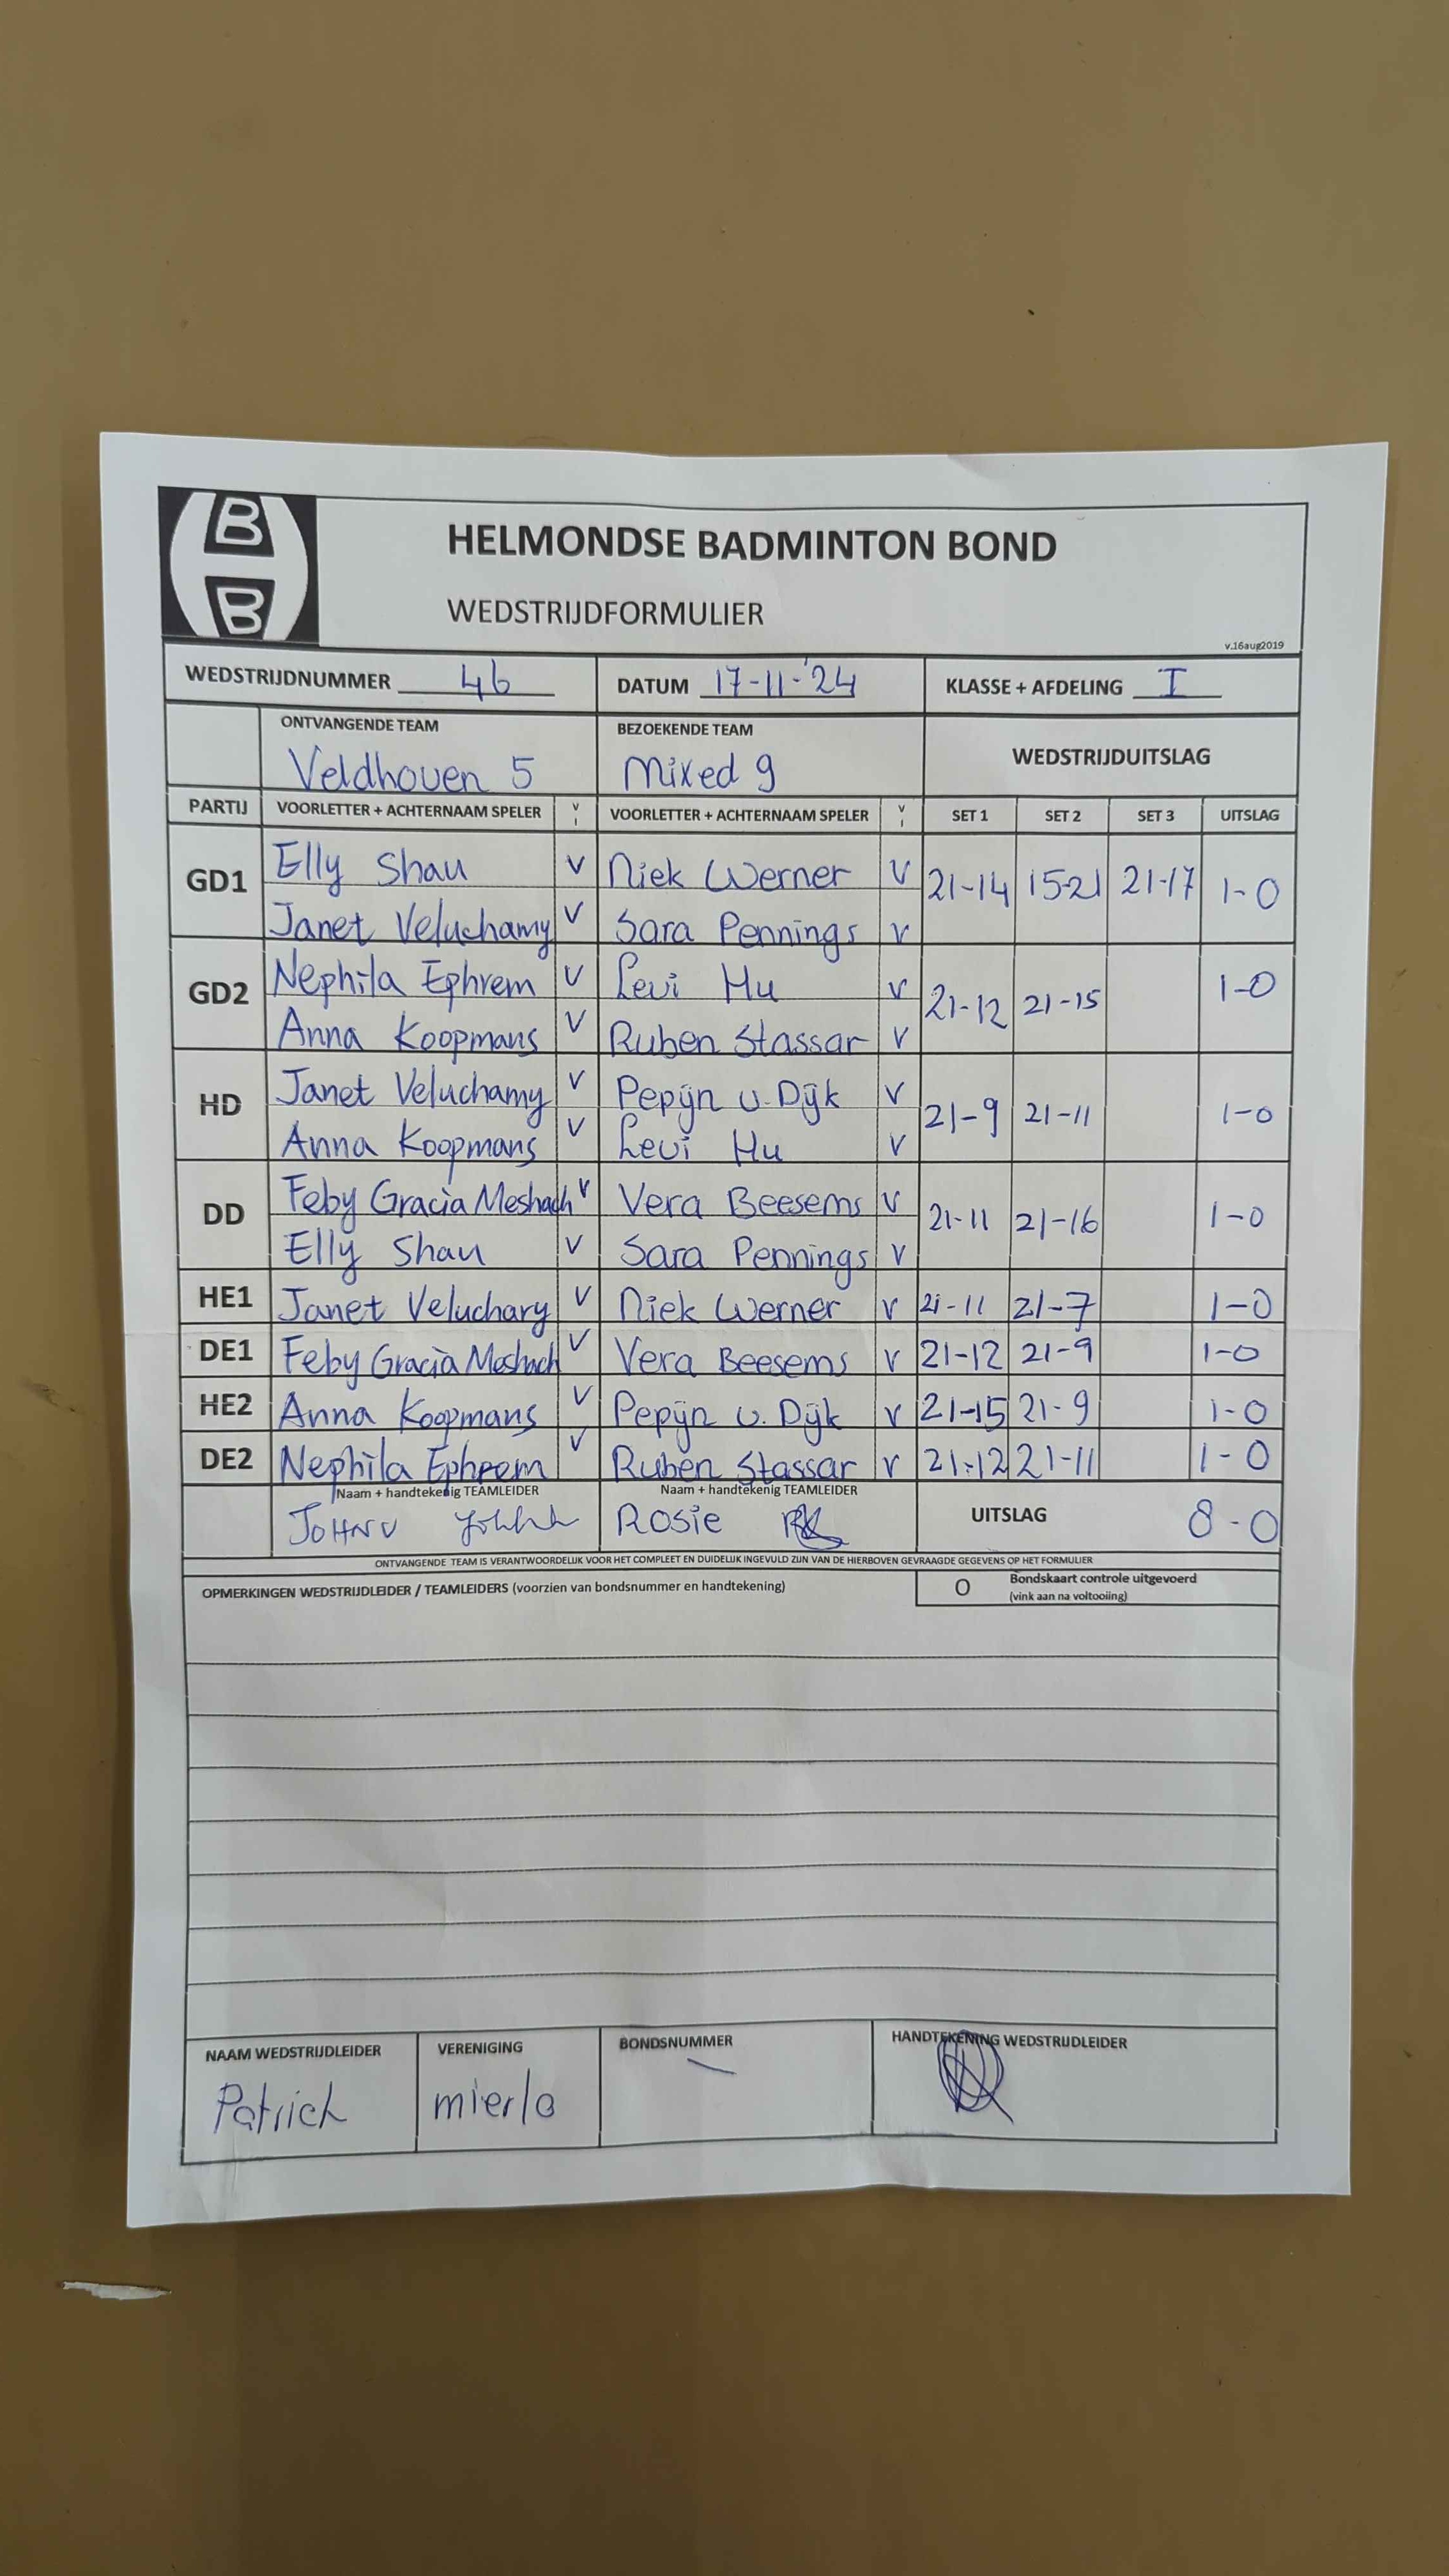 B
B
HELMONDSE BADMINTON BOND
WEDSTRIJDFORMULIER
v.16aug2019
WEDSTRIJDNUMMER 46 DATUM 17-11-'24 KLASSE + AFDELING I
ONTVANGENDE TEAM BEZOEKENDE TEAM WEDSTRIJDUITSLAG
Veldhoven 5 Mixed 9
PARTIJ VOORLETTER + ACHTERNAAM SPELER V VOORLETTER + ACHTERNAAM SPELER V SET 1 SET 2 SET 3 UITSLAG
GD1 Elly Shau V Niek Werner V 21-14 15-21 21-17 1-0
Janet Veluchamy V Sara Pennings V
GD2 Nephila Ephrem V Levi Hu V 21-12 21-15 1-0
Anna Koopmans V Ruben Stassar V
HD Janet Veluchamy V Pepijn v. Dijk V 21-9 21-11 1-0
Anna Koopmans V Levi Hu V
DD Feby Gracia Meshach V Vera Beesems V 21-11 21-16 1-0
Elly Shau V Sara Pennings V
HE1 Janet Veluchary V Niek Werner V 21-11 21-7 1-0
DE1 Feby Gracia Meshach V Vera Beesems V 21-12 21-9 1-0
HE2 Anna Koopmans V Pepijn v. Dijk V 21-15 21-9 1-0
DE2 Nephila Ephrem V Ruben Stassar V 21-12 21-11 1-0
Naam + handtekenig TEAMLEIDER Naam + handtekenig TEAMLEIDER UITSLAG 8-0
Rosie
ONTVANGENDE TEAM IS VERANTWOORDELIJK VOOR HET COMPLEET EN DUIDELIJK INGEVULD ZIJN VAN DE HIERBOVEN GEVRAAGDE GEGEVENS OP HET FORMULIER
OPMERKINGEN WEDSTRIJDLEIDER / TEAMLEIDERS (voorzien van bondsnummer en handtekening) O Bondskaart controle uitgevoerd
(vink aan na voltooiing)
NAAM WEDSTRIJDLEIDER VERENIGING BONDSNUMMER HANDTEKENING WEDSTRIJDLEIDER
Patrick mierlo